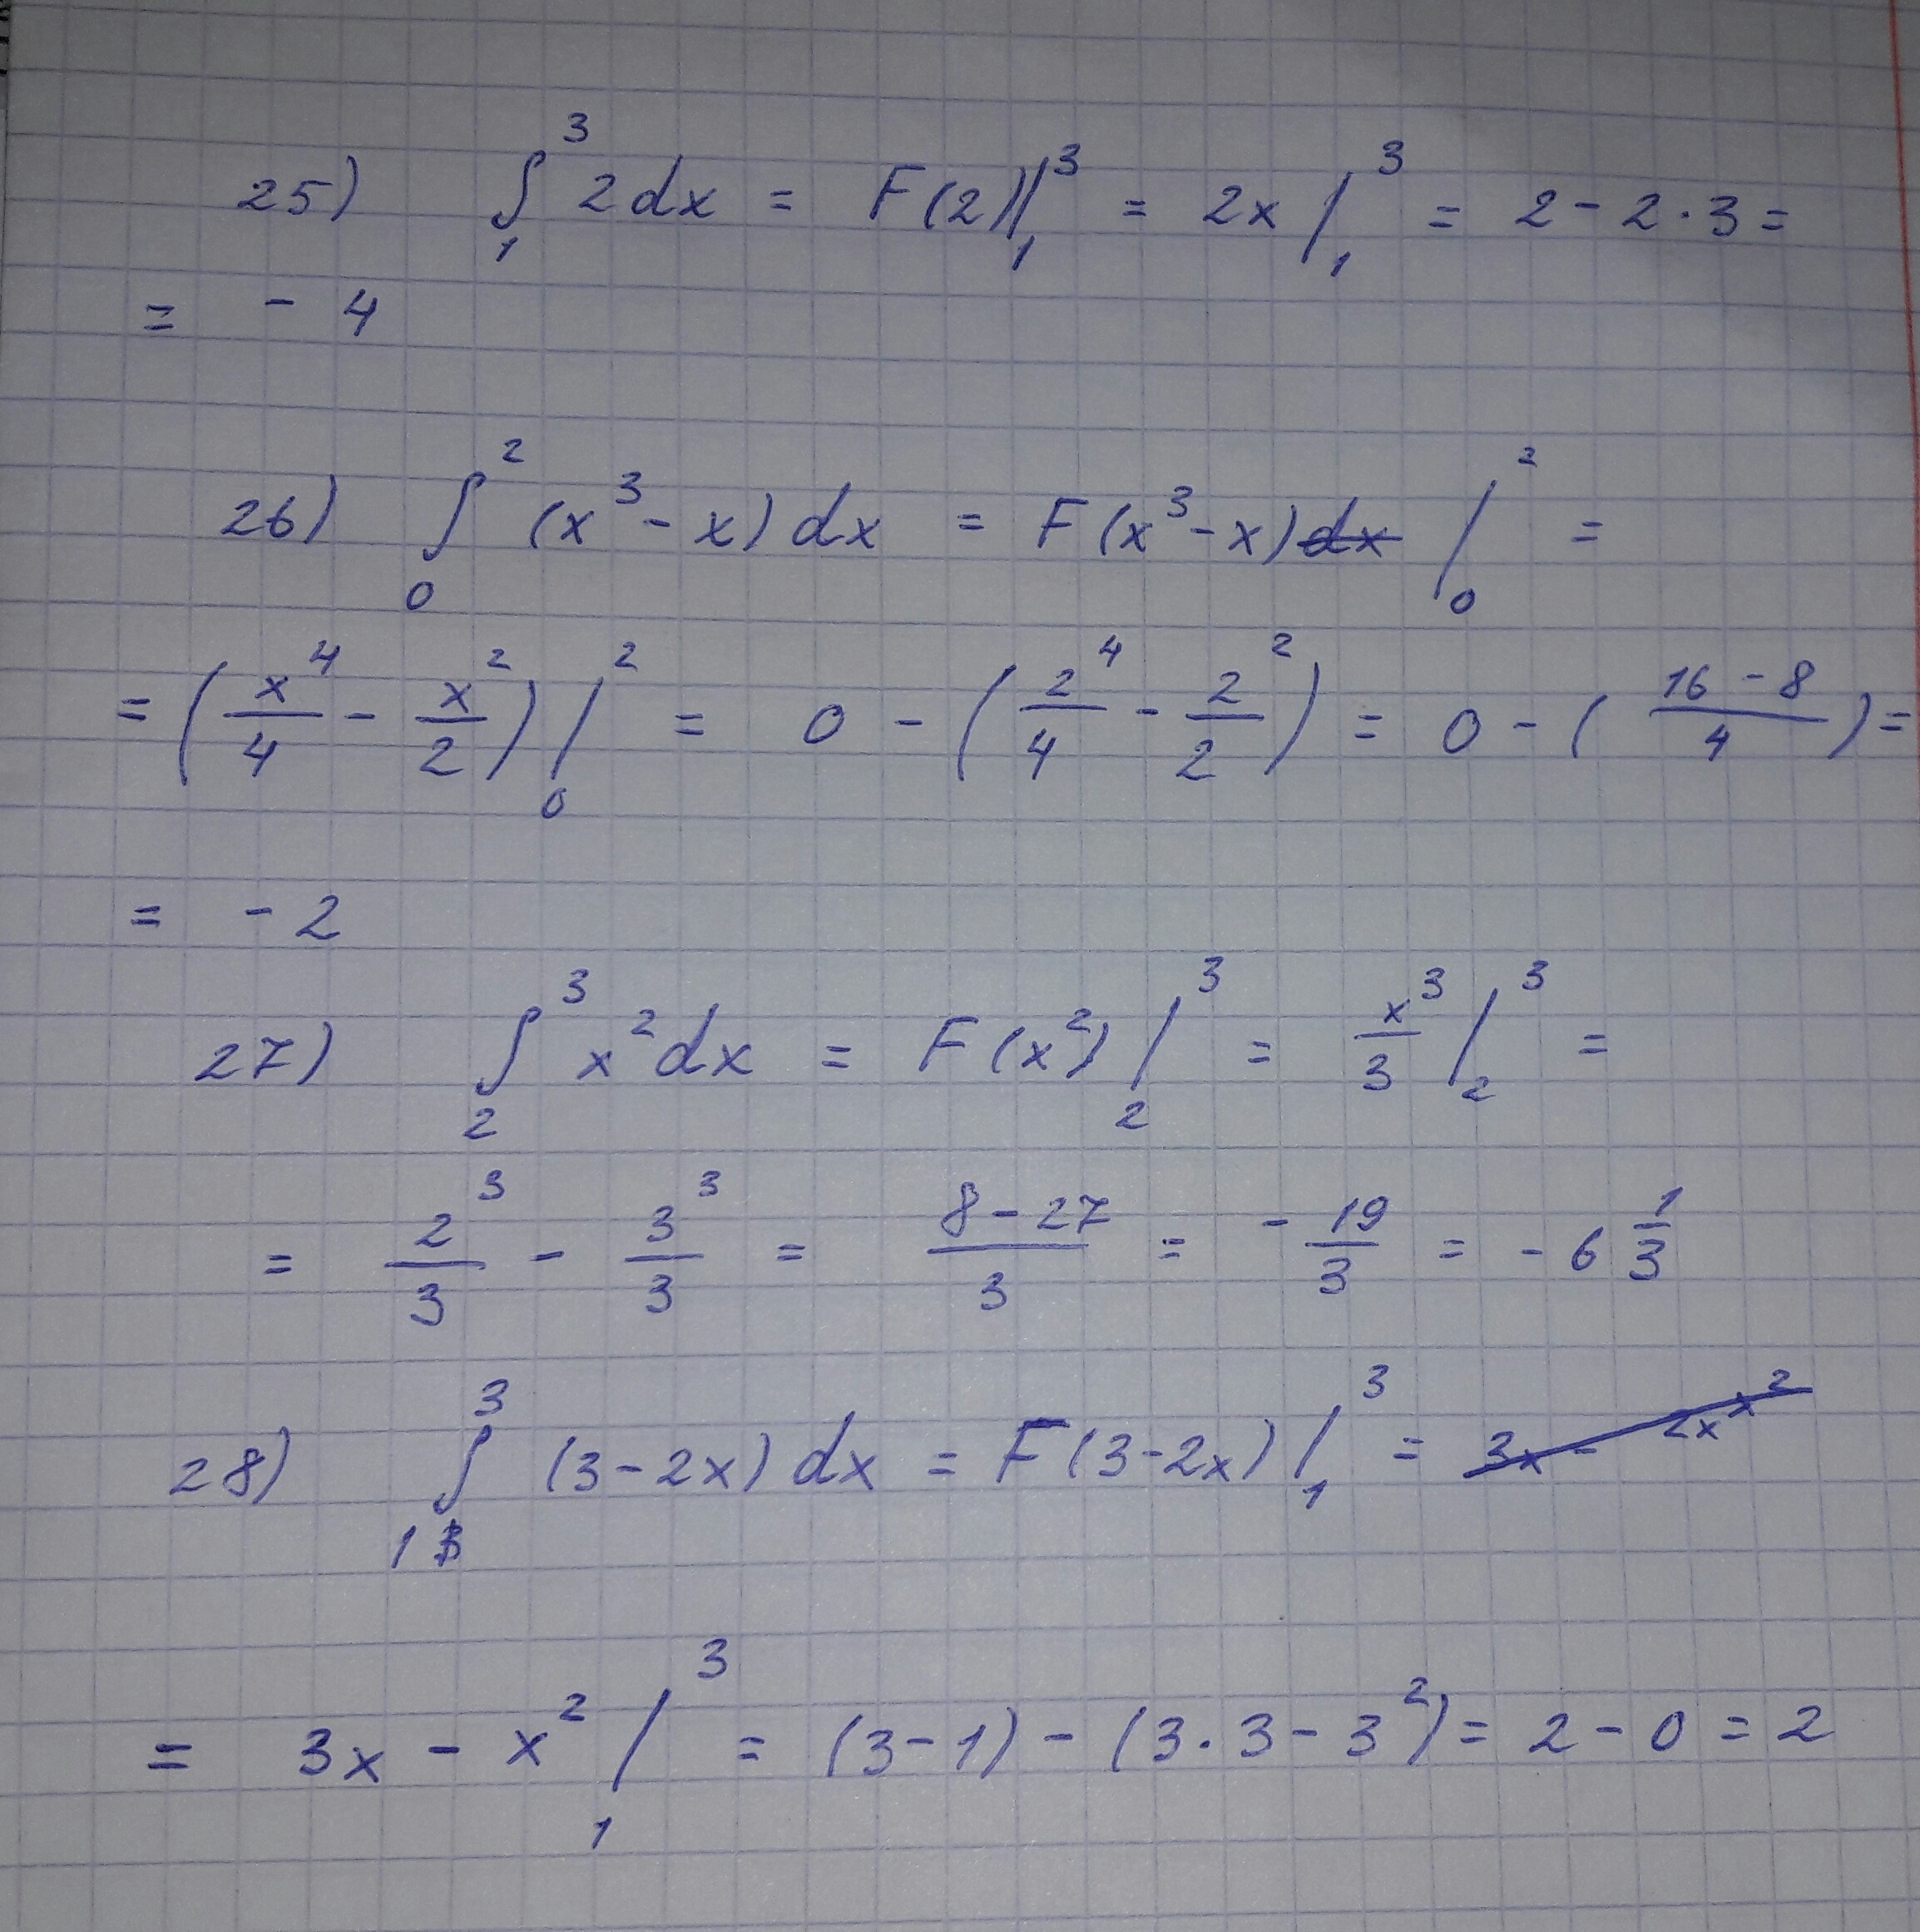 25) ∫₁³ 2dx = F(2)|₁³ = 2x |₁³ = 2 - 2 · 3 =
= - 4
26) ∫₀² (x³ - x) dx = F(x³ - x) dx |₀² =
= (x⁴/4 - x²/2) |₀² = 0 - (2⁴/4 - 2²/2) = 0 - ((16 - 8)/4) =
= - 2
27) ∫₂³ x²dx = F(x²) |₂³ = x³/3 |₂³ =
= 2³/3 - 3³/3 = (8 - 27)/3 = - 19/3 = - 6 1/3
28) ∫₁³ (3 - 2x) dx = F(3 - 2x) |₁³ = 3x - 2x x²
= 3x - x² |₁³ = (3 - 1) - (3 · 3 - 3²) = 2 - 0 = 2